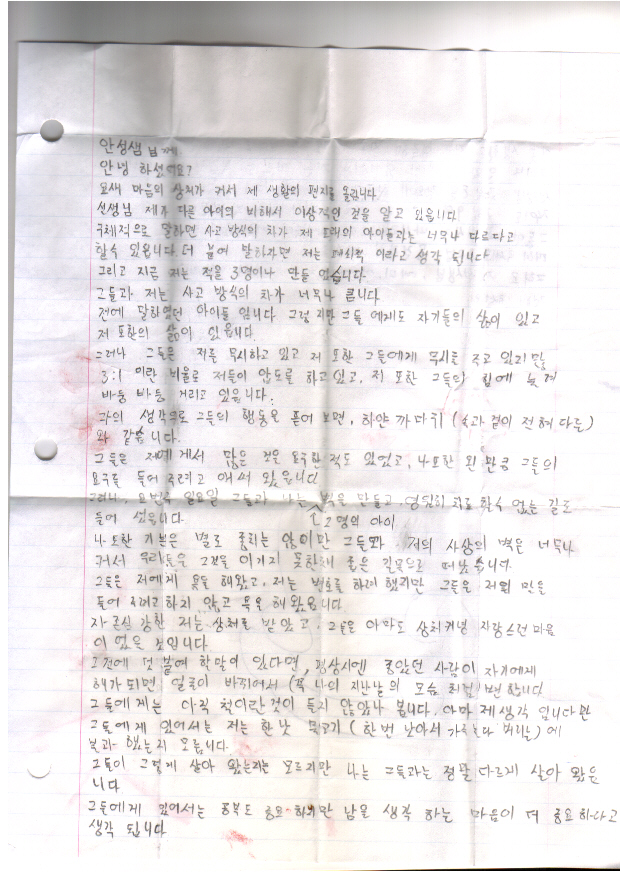 안성샘 님께
안녕 하셨어요?
요새 마음의 상처가 커서 제 생활의 편지를 올립니다
선생님 제가 다른 아이의 비해서 이상적인 것을 알고 있읍니다
구체적으로 말하면 사고 방식의 차가 제 또래의 아이들과는 너무나 다르다고
할수 있읍니다. 더 붙여 말하자면 저는 폐쇄적 이라고 생각 됩니다
그리고 지금 저는 적을 3명이나 만들 었습니다.
그들과 저는 사고 방식의 차가 너무나 큽니다
전에 말하였던 아이들 입니다 그렇지만 그들 에게도 자기들의 삶이 있고
저 또한의 삶이 있읍니다
그러나 그들은 저를 무시하고 있고 저 또한 그들에게 무시를 주고 있지만
3:1 이란 비율로 저들이 압도를 하고 있고, 저 또한 그들의 힘에 눌려
바둥 바둥 거리고 있읍니다.
나의 생각으로 그들의 행동을 뜯어 보면, 하얀 까마귀 (속과 겉이 전혀 다름)
와 같습니다.
그들은 저에게서 많은 것을 요구한 적도 있었고, 나또한 왼만큼 그들의
요구를 들어 주려고 애써 왔읍니다
그러나, 요번주 일요일 그들과 나는 벽을 만들고, 영원히 치료 할수 없는 길로
들어 섰읍니다 2명의 아이
나 또한 기분은 별로 좋치는 않이만 그들와 저의 사상의 벽은 너무나
커서 우리들은 그것을 이기지 못한체 좁은 길목으로 떠났습니다.
그들은 저에게 욕을 해왔고, 저는 변호를 하려 했지만 그들은 저의 말을
들어 주려고 하지 않고 욕을 해 왔읍니다.
자존심 강한 저는 상처를 받았고, 그들은 아마도 상처커녕 자랑스런 마음
이 있을 것입니다.
그전에 덧붙여 할말이 있다면, 평상시엔 좋았던 사람이 자기에게
해가 되면 얼굴이 바뀌어서 (꼭 나의 지난날의 모습 처럼) 변합니다
그들에게는 아직 철이란것이 들지 않았나 봅니다. 아마 제생각 입니다만
그들에게 있어서는 저는 한낫 물고기 에
불과 했는지 모릅니다.
그들이 그렇게 살아 왔는지는 모르지만 나는 그들과는 정말 다르게 살아 왔읍
니다
그들에게 있어서는 중요 하지만 남을 생각 하는 마음이 더 중요하다고
생각 됩니다